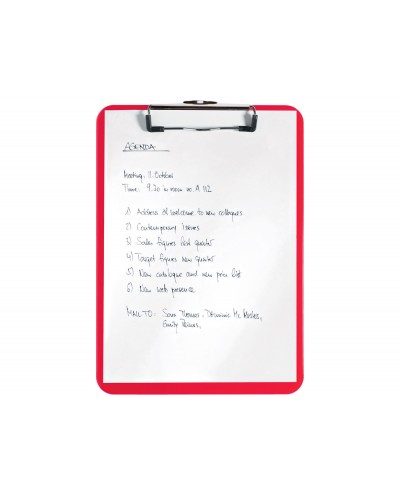 AGENDA:
Meeting: 11. October
Time: 9.20 in room no. A 112
1) Address of welcome to new colleques
2) Contemporary Issues
3) Sales figures last quarter
4) Target figures new quarter
5) New catalogue and new price list
6) New web presence
MAIL TO: Sara Thomas, Dominic Mc
Emily